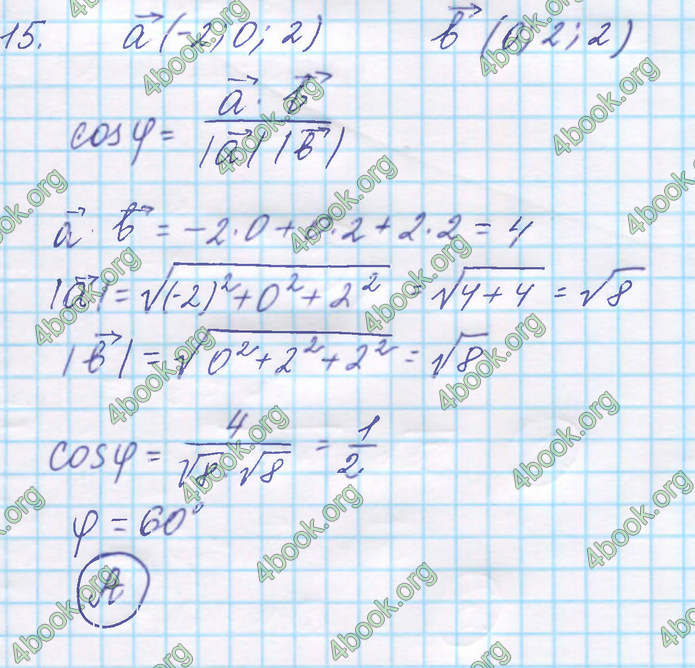 15. a⃗ (-2; 0; 2) b⃗ (0; 2; 2)
cosφ = (a⃗ · b⃗) / (|a⃗| |b⃗|)
a⃗ · b⃗ = -2·0 + 0·2 + 2·2 = 4
|a⃗| = √((-2)² + 0² + 2²) = √(4+4) = √8
|b⃗| = √(0² + 2² + 2²) = √8
cosφ = 4 / (√8 · √8) = 1/2
φ = 60°
А
4book.org